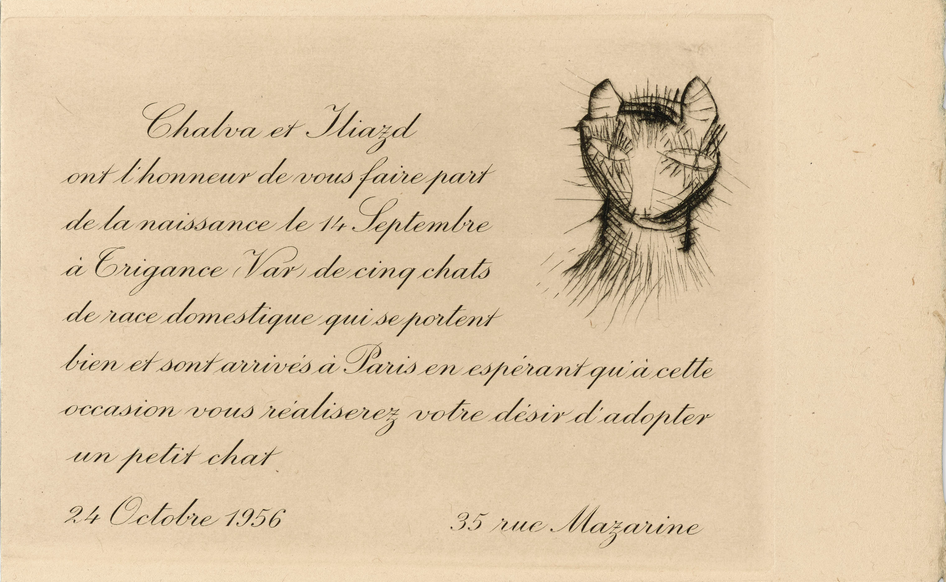 Chalva et Iliazd
ont l'honneur de vous faire part
de la naissance le 14 Septembre
à Trigance (Var) de cinq chats
de race domestique qui se portent
bien et sont arrivés à Paris en espérant qu'à cette
occasion vous réaliserez votre désir d'adopter
un petit chat.
24 Octobre 1956 35 rue Mazarine